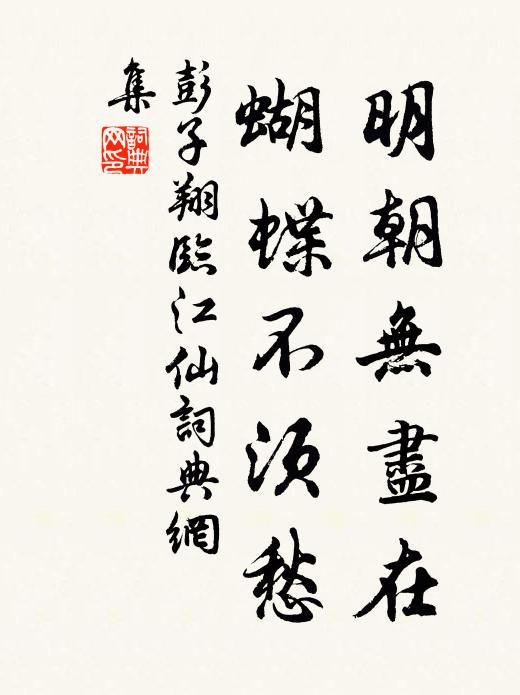 明朝無盡在
蝴蝶不須愁
彭子翔臨江仙詞典網
集
詞典網印